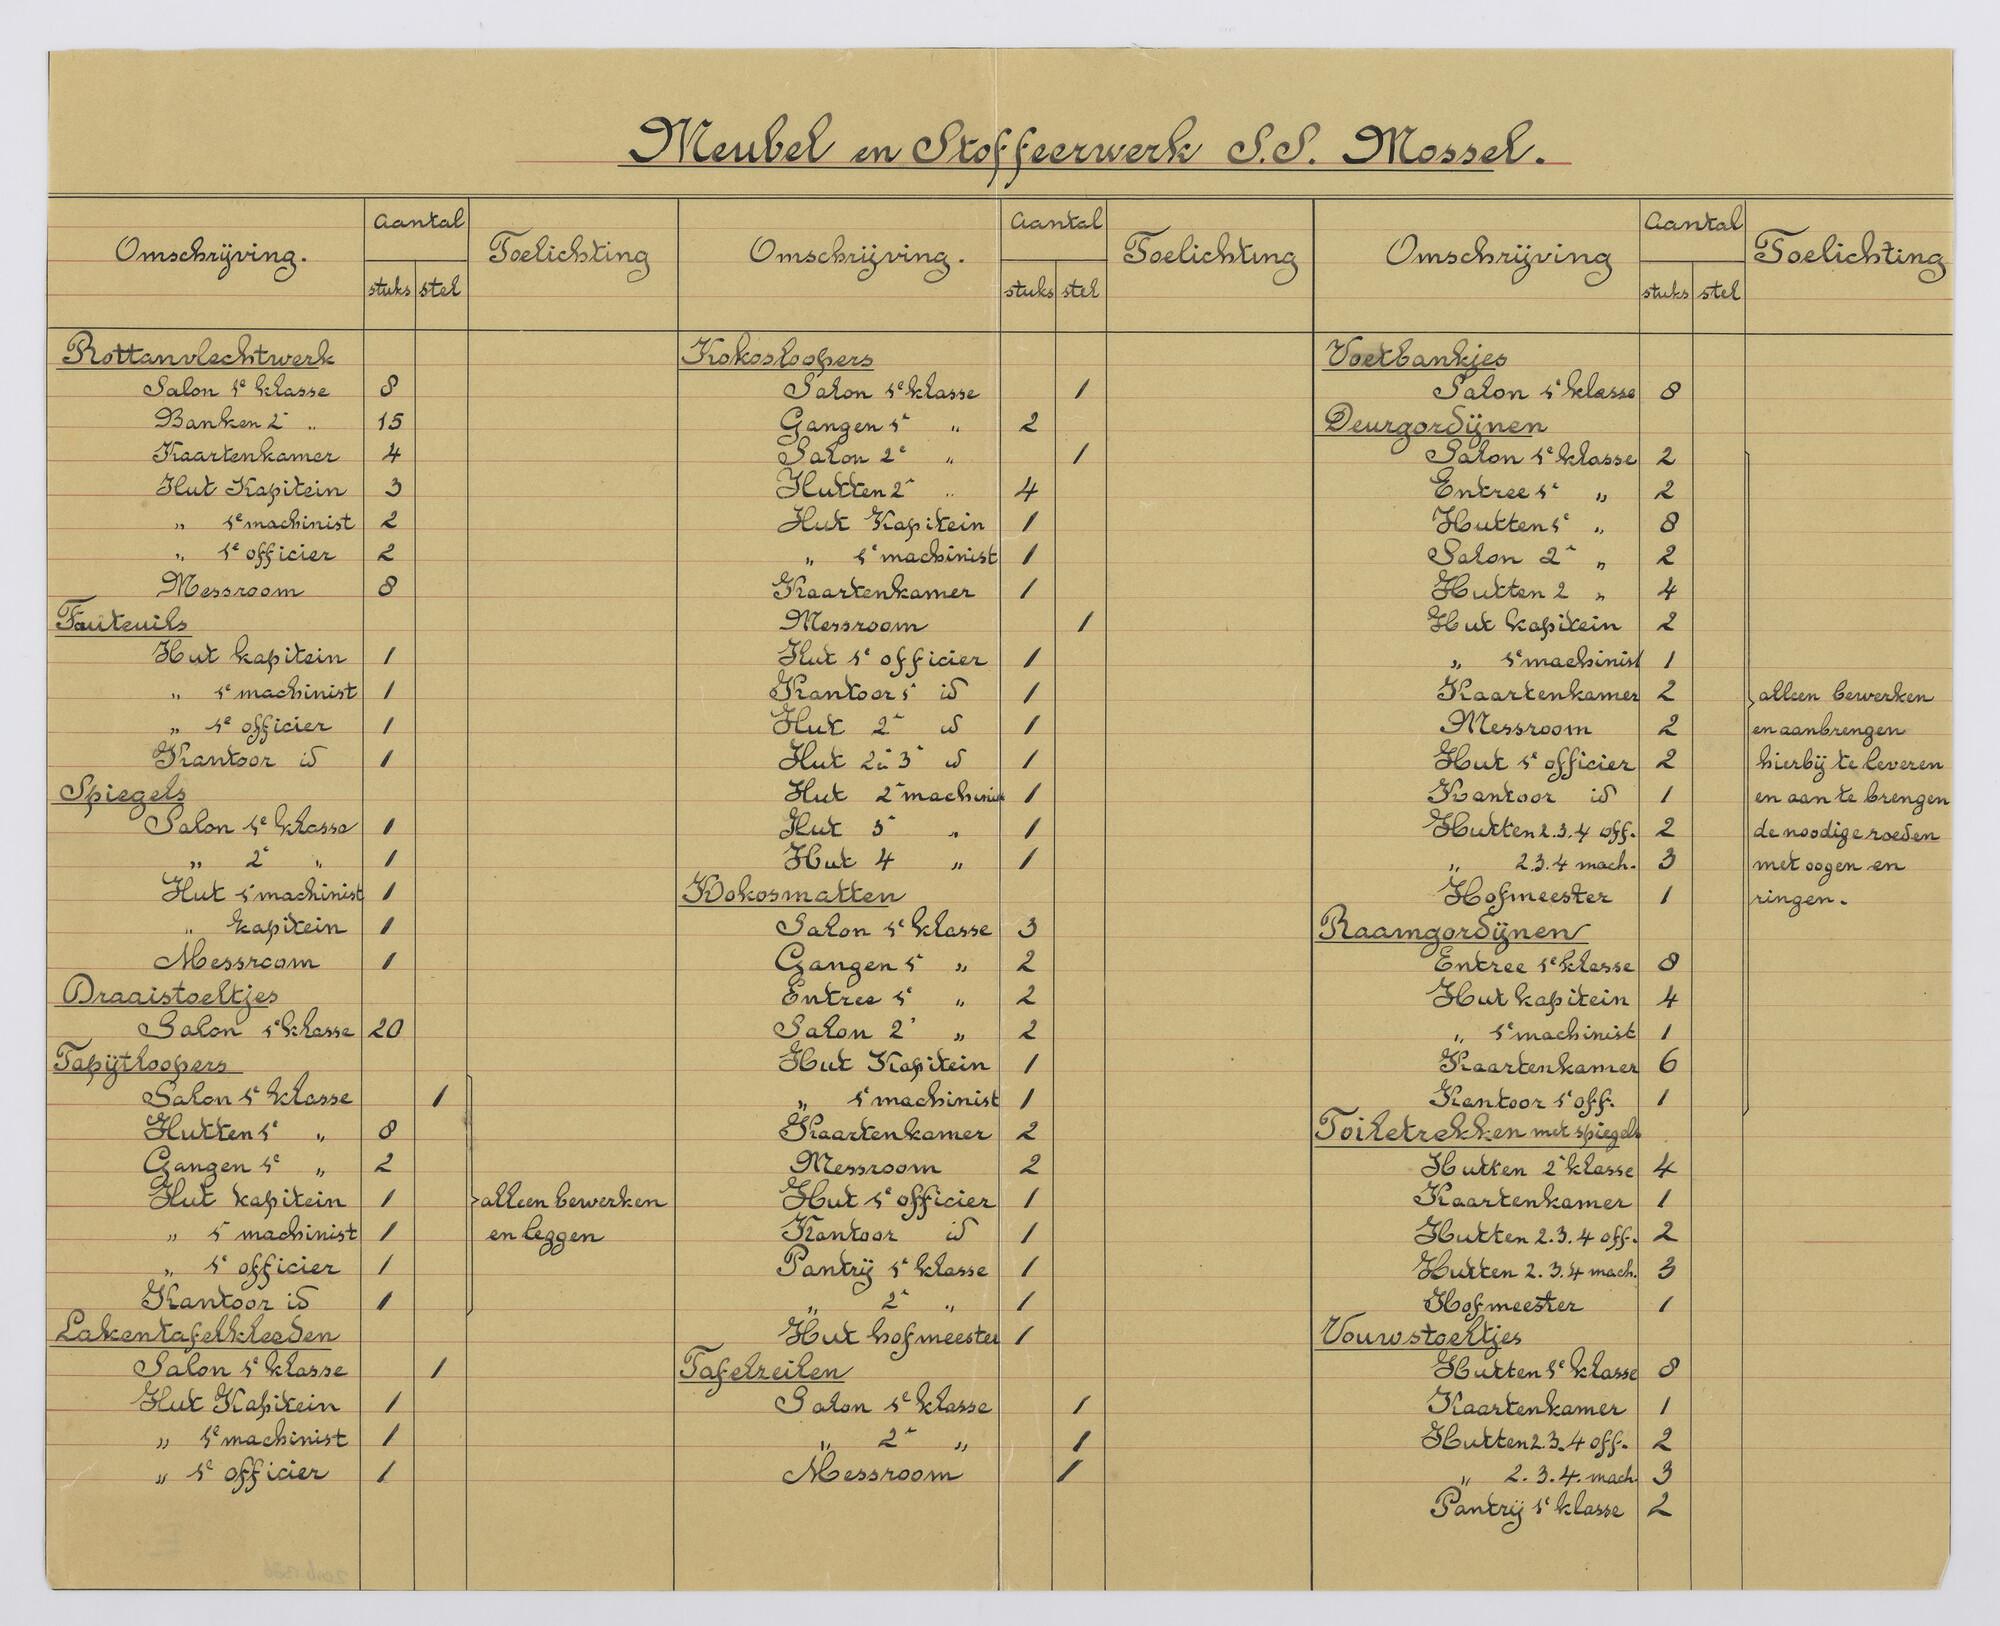 Meubel en Stoffeerwerk S.S. Mossel.
Omschrijving. Aantal stuks stel Toelichting
Rottanvlechtwerk
Salon 1e klasse 8
Banken 2e „ 15
Kaartenkamer 4
Hut Kapitein 3
„ 1e machinist 2
„ 1e officier 2
Messroom 8
Fauteuils
Hut kapitein 1
„ 1e machinist 1
„ 1e officier 1
Kantoor id 1
Spiegels
Salon 1e klasse 1
„ 2e „ 1
Hut 1e machinist 1
„ kapitein 1
Messroom 1
Draaistoeltjes
Salon 1e klasse 20
Tapijtloopers
Salon 1e klasse 1
Hutten 1e „ 8
Gangen 1e „ 2
Hut kapitein 1 alleen bewerken
„ 1e machinist 1 en leggen
„ 1e officier 1
Kantoor id 1
Lakentafelkleeden
Salon 1e klasse 1
Hut Kapitein 1
„ 1e machinist 1
„ 1e officier 1
Omschrijving. Aantal stuks stel Toelichting
Kokosloopers
Salon 1e klasse 1
Gangen 1e „ 2
Salon 2e „ 1
Hutten 2e „ 4
Hut Kapitein 1
„ 1e machinist 1
Kaartenkamer 1
Messroom 1
Hut 1e officier 1
Kantoor 1e id 1
Hut 2e id 1
Hut 2e 3e id 1
Hut 2e machinist 1
Hut 3e „ 1
Hut 4 „ 1
Kokosmatten
Salon 1e klasse 3
Gangen 1e „ 2
Entree 1e „ 2
Salon 2e „ 2
Hut Kapitein 1
„ 1e machinist 1
Kaartenkamer 2
Messroom 2
Hut 1e officier 1
Kantoor id 1
Pantrij 1e klasse 1
„ 2e „ 1
Hut hofmeester 1
Tafelzeilen
Salon 1e klasse 1
„ 2e „ 1
Messroom 1
Omschrijving Aantal stuks stel Toelichting
Voetbankjes
Salon 1e klasse 8
Deurgordijnen
Salon 1e klasse 2
Entree 1e „ 2
Hutten 1e „ 8
Salon 2e „ 2
Hutten 2 „ 4
Hut kapitein 2
„ 1e machinist 1
Kaartenkamer 2 alleen bewerken
Messroom 2 en aanbrengen
Hut 1e officier 2 hierbij te leveren
Kantoor id 1 en aan te brengen
Hutten 2.3.4 off. 2 de noodige roeden
„ 2.3.4 mach. 3 met oogen en
Hofmeester 1 ringen.
Raamgordijnen
Entree 1e klasse 8
Hut kapitein 4
„ 1e machinist 1
Kaartenkamer 6
Kantoor 1e off. 1
Toiletrekken met spiegels
Hutten 2e klasse 4
Kaartenkamer 1
Hutten 2.3.4 off. 2
Hutten 2.3.4 mach. 3
Hofmeester 1
Vouwstoeltjes
Hutten 1e klasse 8
Kaartenkamer 1
Hutten 2.3.4 off. 2
„ 2.3.4. mach. 3
Pantrij 1e klasse 2